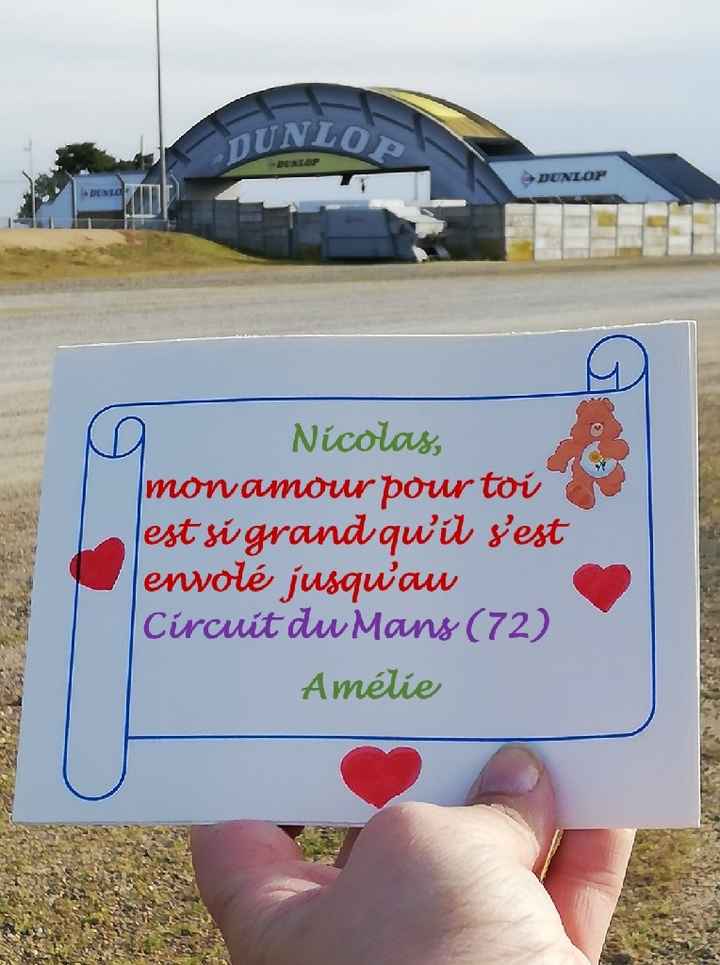 DUNLOP
DUNLOP
DUNLOP
DUNLOP
Nicolas,
mon amour pour toi
est si grand qu'il s'est
envolé jusqu'au
Circuit du Mans (72)
Amélie